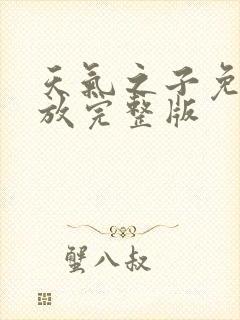 天氣之子免
放完整版
蟹八叔